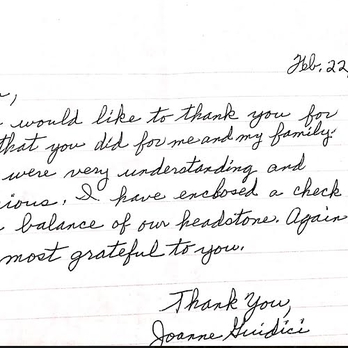 Feb. 22,
would like to thank you for
that you did for me and my family.
were very understanding and
cious. I have enclosed a check
balance of our headstone. Again
most grateful to you.
Thank You,
Joanne Guidici